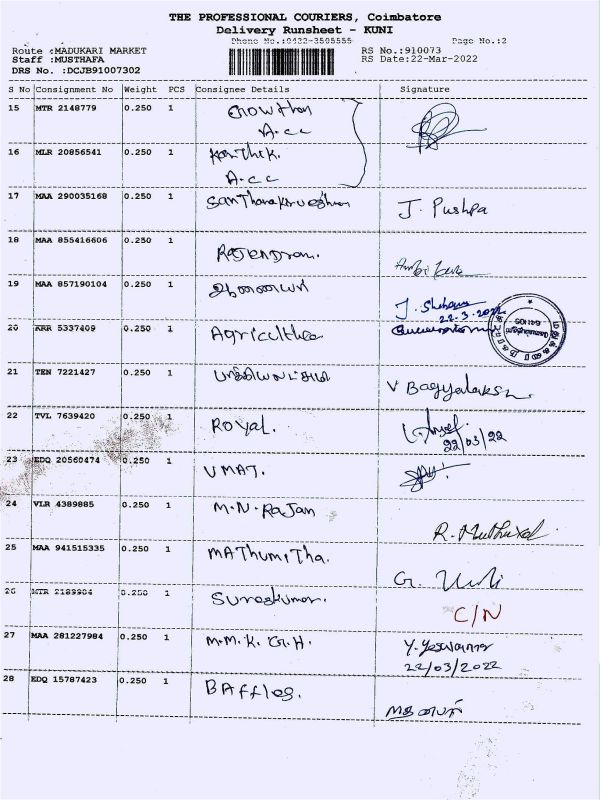 THE PROFESSIONAL COURIERS, Coimbatore
Delivery Runsheet - KUNI
Phone No.:0422-3505555 Page No.:2
Route :MADUKARI MARKET RS No.:910073
Staff :MUSTHAFA RS Date:22-Mar-2022
DRS No. :DCJB91007302
S No Consignment No Weight PCS Consignee Details Signature
15 MTR 2148779 0.250 1 Gowtham
A.cc
16 MLR 20856541 0.250 1 Karthik.
A.cc
17 MAA 290035168 0.250 1 J. Pushpa
18 MAA 855416606 0.250 1 Rajendran.
19 MAA 857190104 0.250 1 J.
22.3.2022
20 KRR 5337409 0.250 1
21 TEN 7221427 0.250 1 V Bagyalaksh
22 TVL 7639420 0.250 1 Royal.
22/03/22
23 EDQ 20560474 0.250 1 UMAT.
24 VLR 4389885 0.250 1 M.N.Rajan R.
25 MAA 941515335 0.250 1 MAThumiTha. G.
26 MTR 2189904 0.250 1 Sureshkumar. C/N
27 MAA 281227984 0.250 1 M.M.K. G.H.
22/03/2022
28 EDQ 15787423 0.250 1 BAffles.